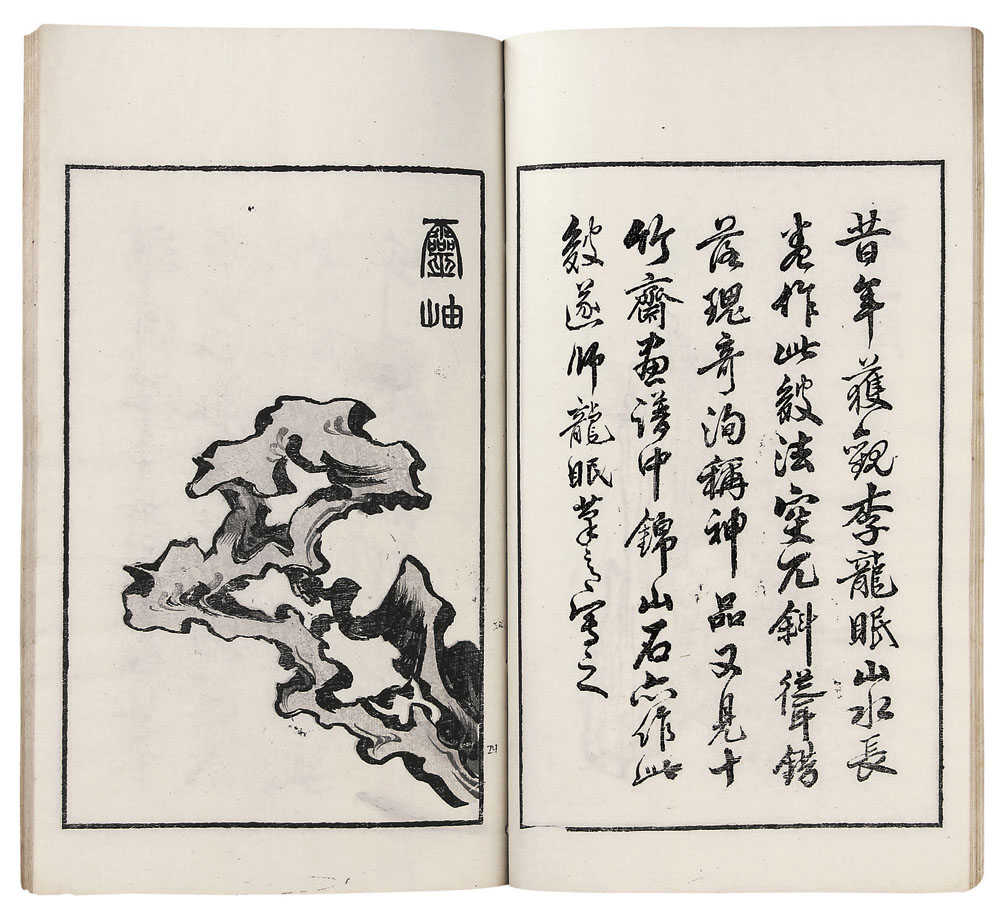 昔年獲觀李龍眠山水長
卷作此皴法空兀斜聳錯
落瑰奇洵稱神品又見十
竹齋畫譜中錦山石亦作此
皴遂師龍眠筆意寫之
靈岫